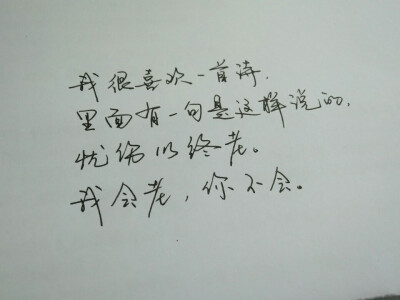 我很喜欢一首诗.
里面有一句是这样说的,
忧伤以终老。
我会老,你不会。